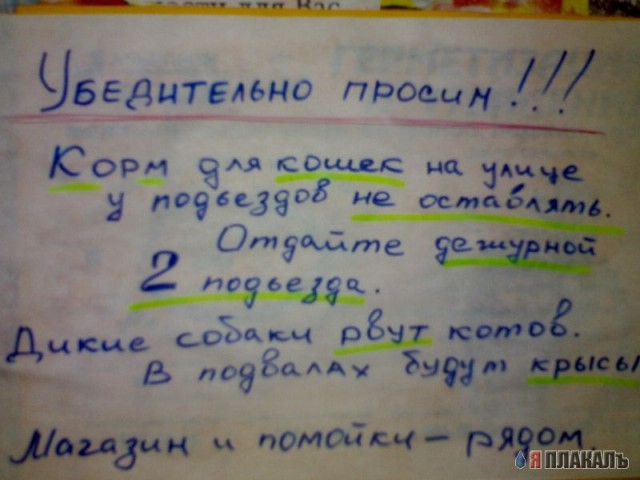 ости для Вас
УБЕДИТЕЛЬНО ПРОСИМ!!!
Корм для кошек на улице
у подьездов не оставлять.
Отдайте дежурной
2 подьезда.
Дикие собаки рвут котов.
В подвалах будут крысы
Магазин и помойки - рядом.
Я ПЛАКАЛЪ